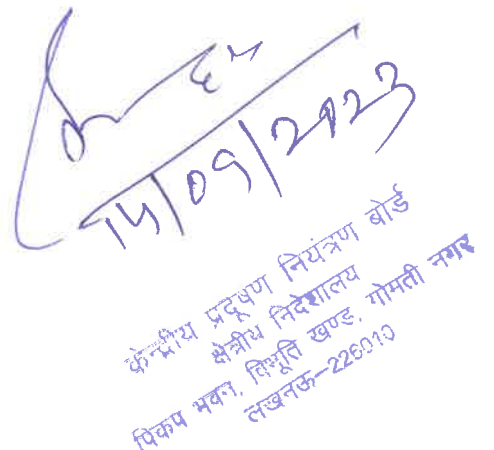 14/09/2023
केन्द्रीय प्रदूषण नियंत्रण बोर्ड
क्षेत्रीय निदेशालय
पिकप भवन, विभूति खण्ड, गोमती नगर
लखनऊ-226010